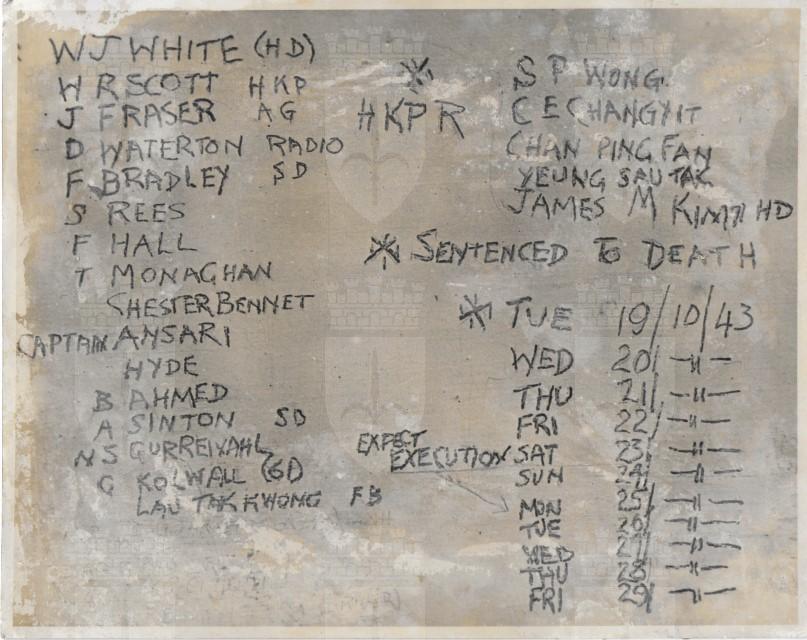 W J WHITE (HD)
W R SCOTT HKP
J FRASER AG
D WATERTON RADIO
F BRADLEY SD
S REES
F HALL
T MONAGHAN
CHESTER BENNET
CAPTAIN ANSARI
HYDE
B AHMED
A SINTON SD
N S GURREIVAHL
G KOLWALL GD
LAU TAK KWONG FB
HKPR
S P WONG
C E CHANGYIT
CHAN PING FAN
YEUNG SAU TAK
JAMES M KIM HD
SENTENCED TO DEATH
TUE 19/10/43
WED 20/ -"-
THU 21/ -"-
FRI 22/ -"-
EXPECT EXECUTION
SAT 23/ -"-
SUN 24/ -"-
MON 25/ -"-
TUE 26/ -"-
WED 27/ -"-
THU 28/ -"-
FRI 29/ -"-